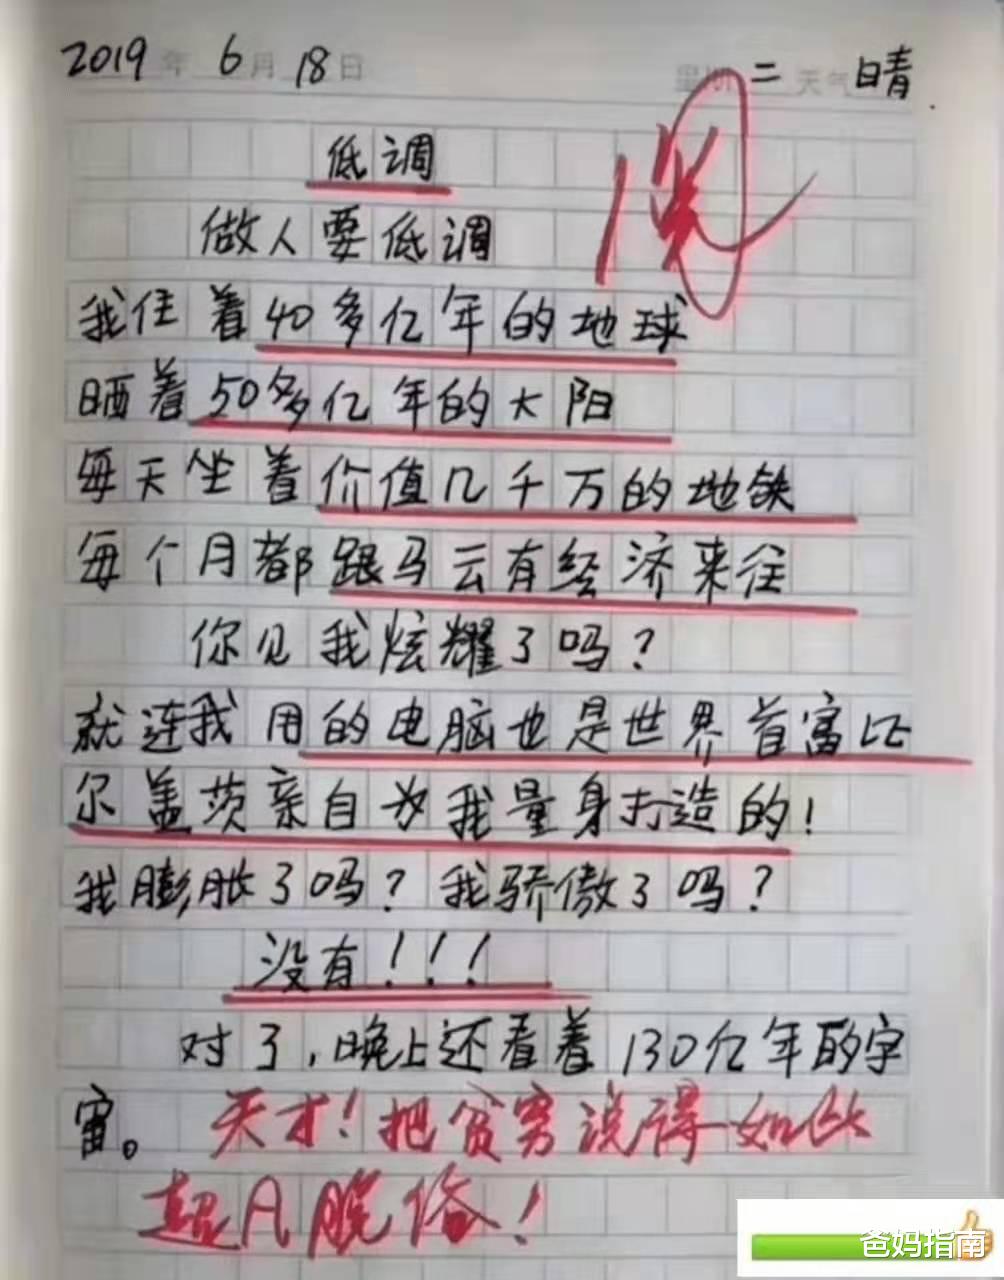 2019年 6月 18日 星期二 天气 晴
低调
做人要低调
我住着40多亿年的地球
晒着50多亿年的太阳
每天坐着价值几千万的地铁
每个月都跟马云有经济来往
你见我炫耀了吗?
就连我用的电脑也是世界首富比
尔盖茨亲自为我量身打造的!
我膨胀了吗?我骄傲了吗?
没有!!!
对了,晚上还看着130亿年的宇
宙。天才!把贫穷说得如此
超凡脱俗!
爸妈指南